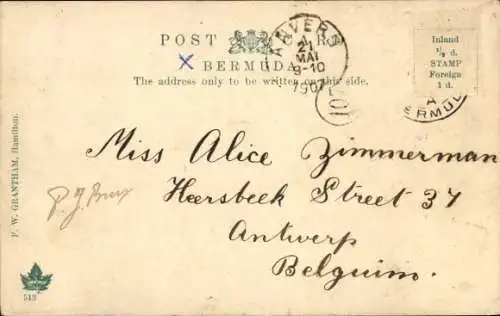 POST CARD
BERMUDA
The address only to be written on this side.
ANVERS
A
21
MAI
9-10
1907
10
Inland
½ d.
STAMP
Foreign
1 d.
A
ERMU
Miss Alice Zimmerman
Heersbeek Street 37
Antwerp
Belguim.
F. W. GRANTHAM, Hamilton.
513